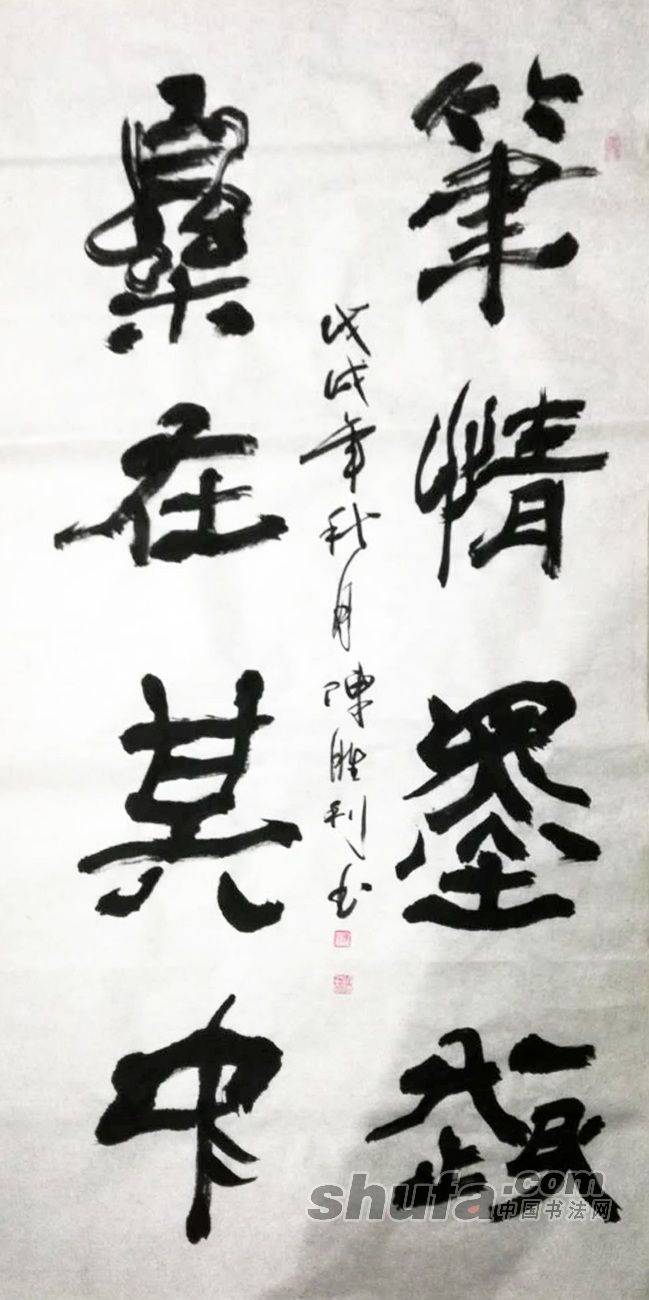 筆情墨趣
樂在其中
戊戌年秋月陳胜利书
shufa.com
中国书法网